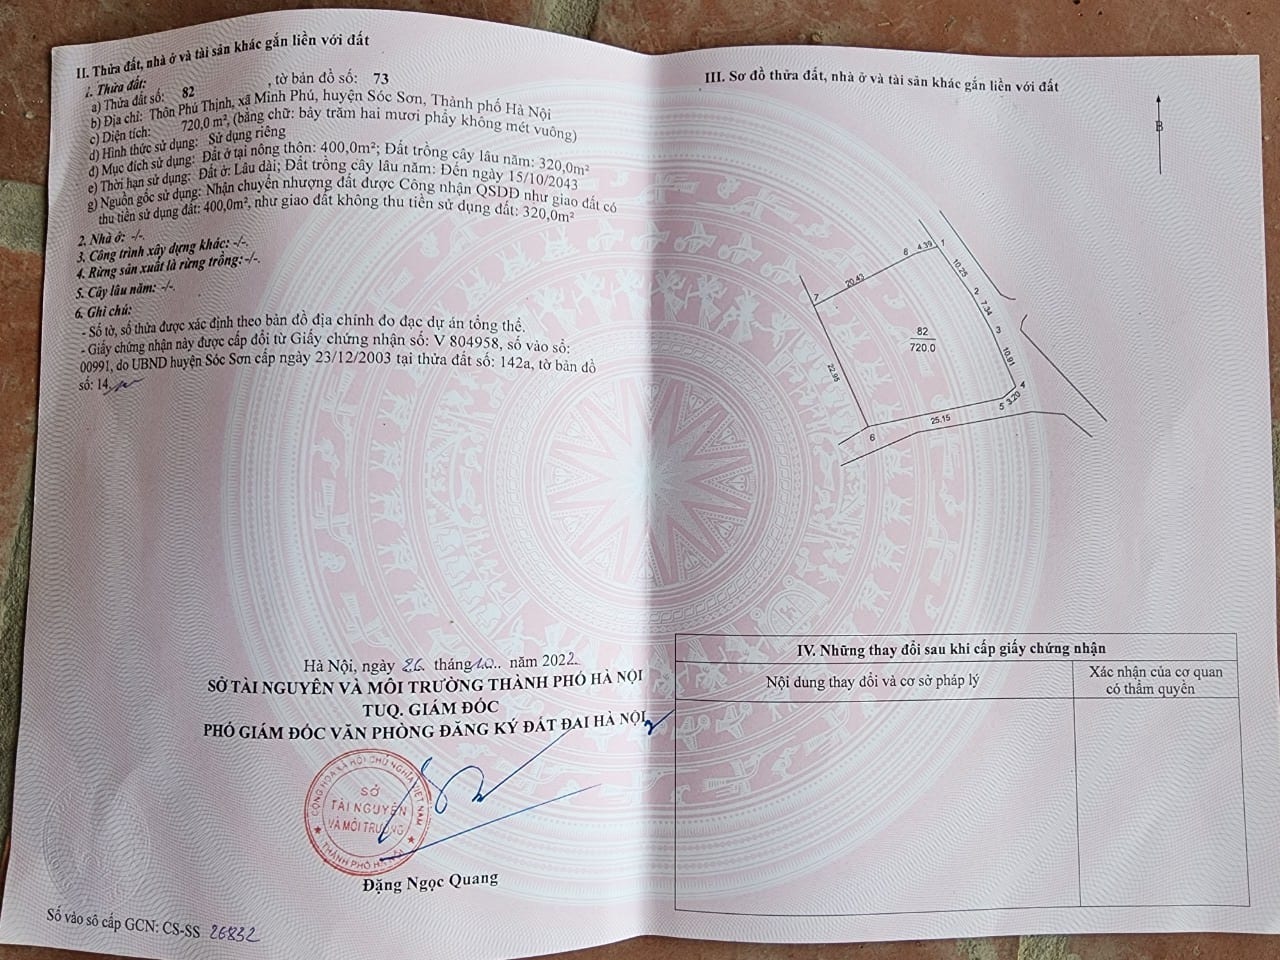 II. Thửa đất, nhà ở và tài sản khác gắn liền với đất
1. Thửa đất:
a) Thửa đất số: 82 , tờ bản đồ số: 73
b) Địa chỉ: Thôn Phú Thịnh, xã Minh Phú, huyện Sóc Sơn, Thành phố Hà Nội
c) Diện tích: 720,0 m², (bằng chữ: bảy trăm hai mươi phẩy không mét vuông)
d) Hình thức sử dụng: Sử dụng riêng
đ) Mục đích sử dụng: Đất ở tại nông thôn: 400,0m²; Đất trồng cây lâu năm: 320,0m²
e) Thời hạn sử dụng: Đất ở: Lâu dài; Đất trồng cây lâu năm: Đến ngày 15/10/2043
g) Nguồn gốc sử dụng: Nhận chuyển nhượng đất được Công nhận QSDĐ như giao đất có
thu tiền sử dụng đất: 400,0m², như giao đất không thu tiền sử dụng đất: 320,0m²
2. Nhà ở: -/-.
3. Công trình xây dựng khác: -/-.
4. Rừng sản xuất là rừng trồng: -/-.
5. Cây lâu năm: -/-.
6. Ghi chú:
- Số tờ, số thửa được xác định theo bản đồ địa chính đo đạc dự án tổng thể.
- Giấy chứng nhận này được cấp đổi từ Giấy chứng nhận số: V 804958, số vào sổ:
00991, do UBND huyện Sóc Sơn cấp ngày 23/12/2003 tại thửa đất số: 142a, tờ bản đồ
số: 14
Hà Nội, ngày 26 tháng 10 năm 2022
SỞ TÀI NGUYÊN VÀ MÔI TRƯỜNG THÀNH PHỐ HÀ NỘI
TUQ. GIÁM ĐỐC
PHÓ GIÁM ĐỐC VĂN PHÒNG ĐĂNG KÝ ĐẤT ĐAI HÀ NỘI
CỘNG HÒA XÃ HỘI CHỦ NGHĨA VIỆT NAM
SỞ
TÀI NGUYÊN
VÀ MÔI TRƯỜNG
THÀNH PHỐ HÀ NỘI
Đặng Ngọc Quang
Số vào sổ cấp GCN: CS-SS 26832
III. Sơ đồ thửa đất, nhà ở và tài sản khác gắn liền với đất
B
8 4.39 1
20.43
10.25
7
2
7.34
3
82
720.0
10.91
22.95
4
3.20
5
25.15
6
IV. Những thay đổi sau khi cấp giấy chứng nhận
Nội dung thay đổi và cơ sở pháp lý
Xác nhận của cơ quan
có thẩm quyền